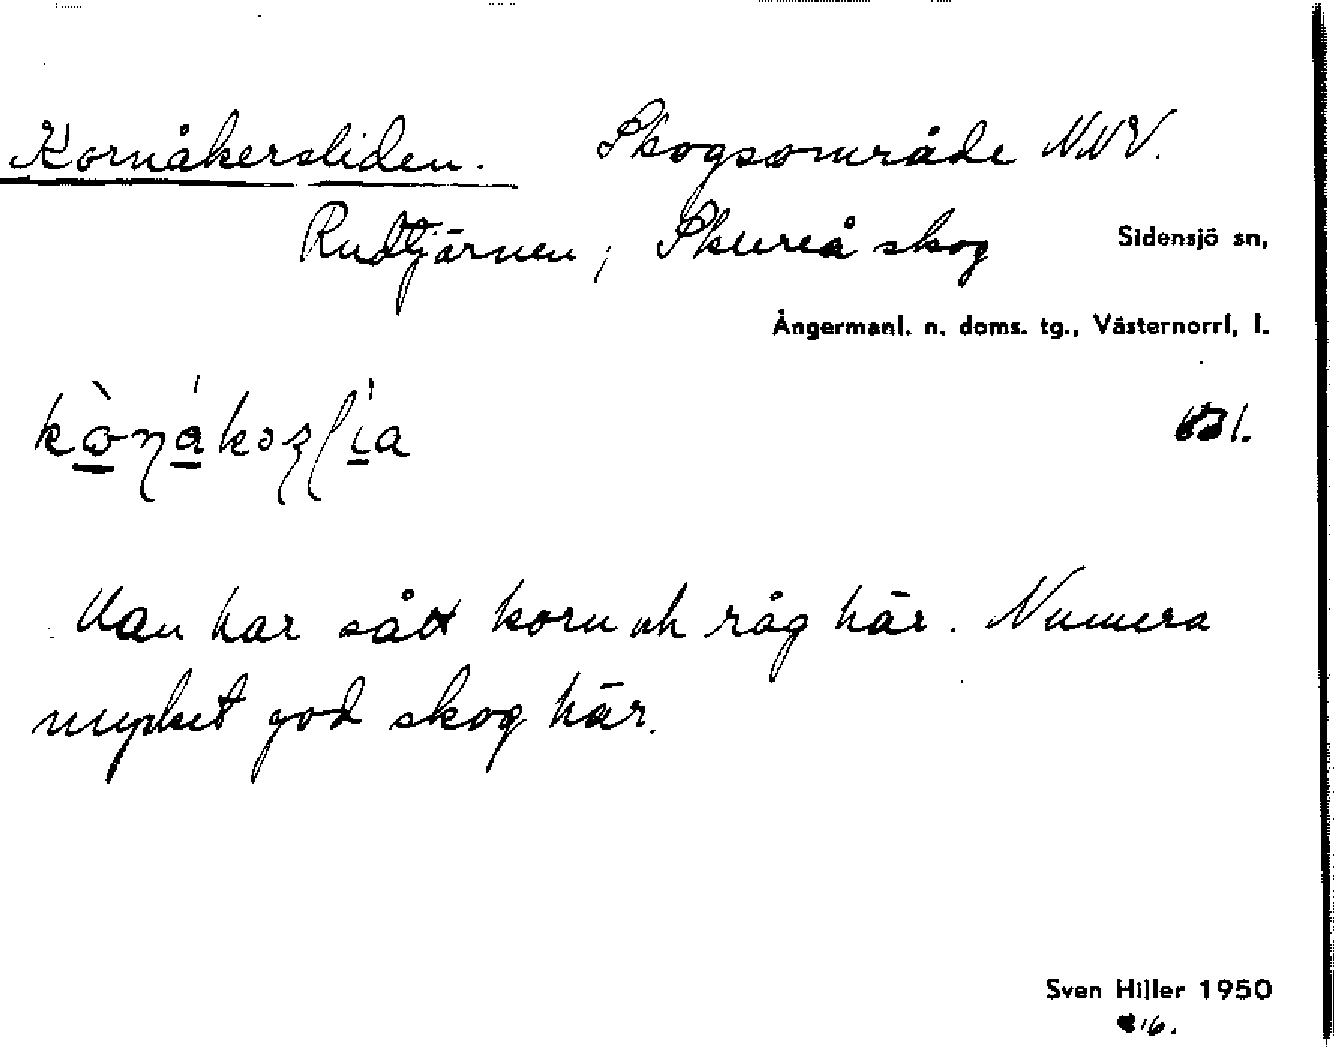 Kornåkersliden. Skogsområde NNV.
Rudtjärnen, Skureå skog Sidensjö sn,
Ångermanl. n. doms. tg., Västernorrl, l.
Man har sått korn och råg här. Numera
mycket god skog här.
Sven Hiller 1950